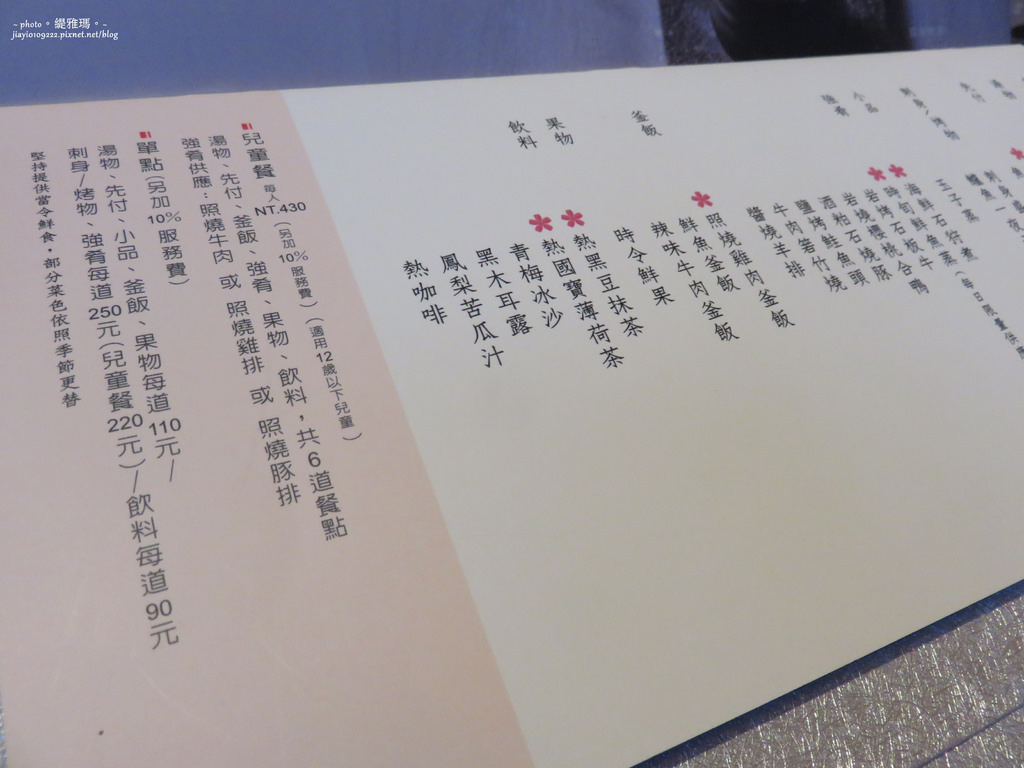 ~ photo。緹雅瑪。~
jiayio109222.pixnet.net/blog
先付
刺身/烤物
小品
強肴
玉子蒸
海鮮石板
岩燒櫻桃谷鴨
岩燒豚
酒粕石魚頭
鹽烤鮭魚
牛肉若竹燒
醬燒羊排
釜飯
照燒雞肉釜飯
鮮魚釜飯
辣味牛肉釜飯
果物
時令鮮果
飲料
熱黑豆抹茶
熱國寶薄荷茶
青梅冰沙
黑木耳露
鳳梨苦瓜汁
熱咖啡
兒童餐 每人 NT.430 (另加10%服務費)(適用12歲以下兒童)
湯物、先付、釜飯、強肴、果物、飲料，共6道餐點
強肴供應：照燒牛肉 或 照燒雞排 或 照燒豚排
單點(另加10%服務費)
湯物、先付、小品、釜飯、果物每道110元/
刺身/烤物、強肴每道250元(兒童餐220元)/飲料每道90元
堅持提供當令鮮食，部分菜色依照季節更替